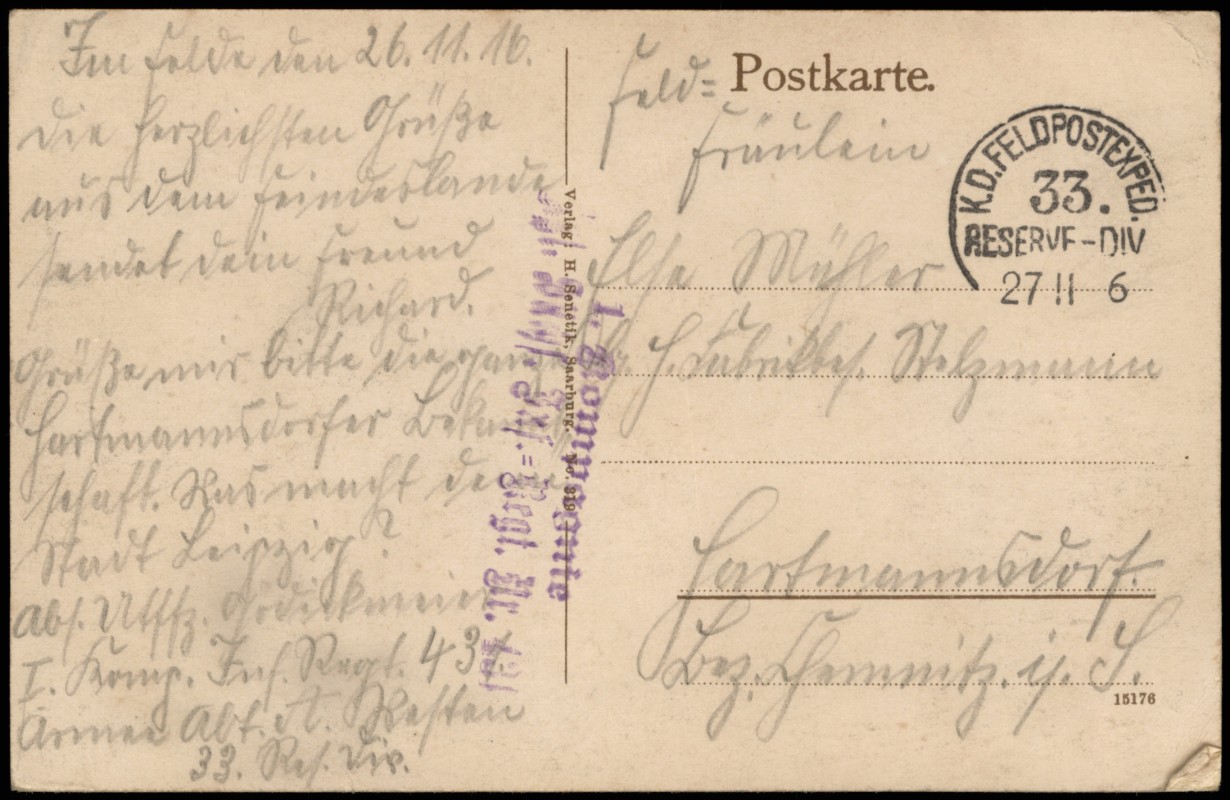 Im Felde den 26.11.16.
Die herzlichsten Grüße
aus dem Feindeslande
sendet dein Freund
Richard.
Grüße mir bitte die ganze
Hartmannsdorfer Bekannt
schaft. Was macht denn
Stadt Leipzig?
Abs. Utffz.
I. Komp. Inf. Regt. 431
Armee Abt. A. Westen
33. Res. Div.
Verlag: H. Senetik, Saarburg. No. 319
1. Kompagnie
Inf.=Regt. Nr. 431
Feld= Postkarte.
Fräulein
Else Mühler
b. H. Fabrikbes. Stelzmann
Hartmannsdorf.
Bez. Chemnitz. i. S.
15176
K.D.FELDPOSTEXPED.
33.
RESERVE-DIV
27 11 6